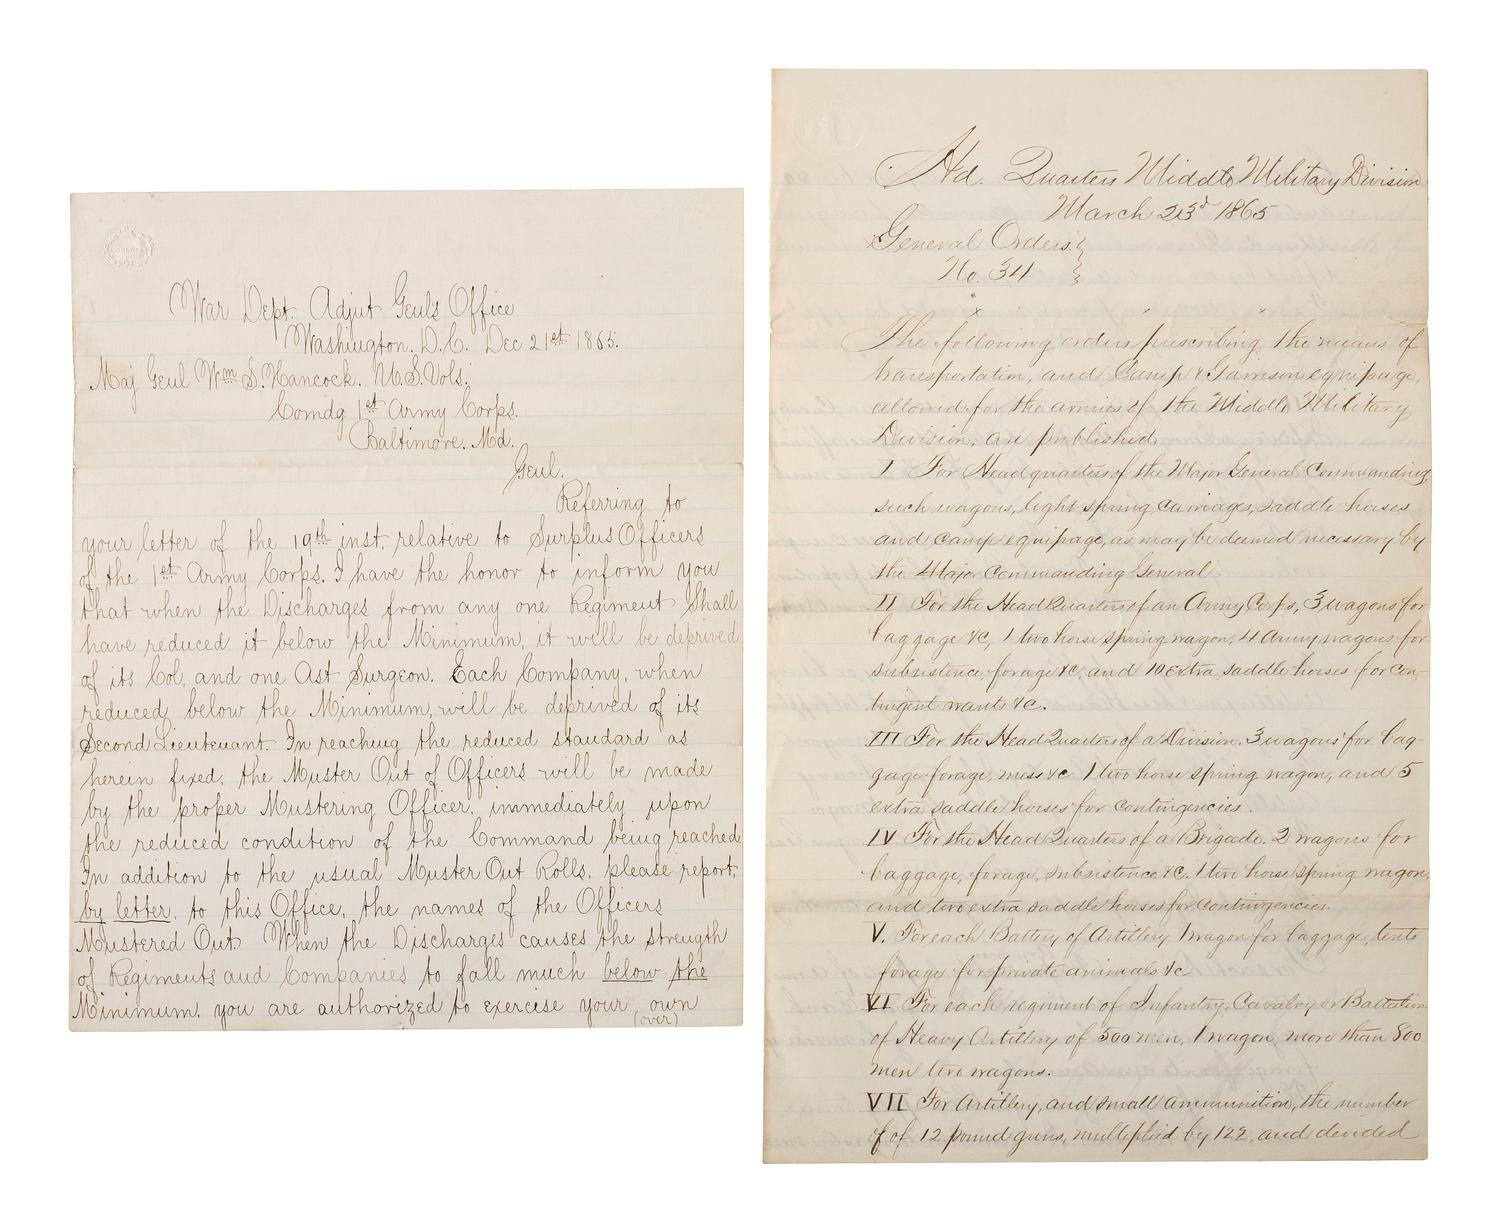 War Dept. Adjut Genl's Office
Washington. D.C. Dec 21st 1865.
Maj Genl Wm S. Hancock. U.S. Vols.
Comdg 1st Army Corps.
Baltimore. Md.
Genl.
Referring to
your letter of the 19th inst. relative to Surplus Officers
of the 1st Army Corps. I have the honor to inform you
that when the Discharges from any one Regiment Shall
have reduced it below the Minimum, it will be deprived
of its Col. and one Ast Surgeon. Each Company, when
reduced below the Minimum, will be deprived of its
Second Lieutenant. In reaching the reduced standard as
herein fixed, the Muster Out of Officers will be made
by the proper Mustering Officer, immediately upon
the reduced condition of the Command being reached.
In addition to the usual Muster Out Rolls, please report,
by letter, to this Office, the names of the Officers
Mustered Out. When the Discharges causes the strength
of Regiments and Companies to fall much below the
Minimum, you are authorized to exercise your own
(over)
Hd. Quarters Middle Military Division
March 23d 1865
General Orders }
No. 34 }
The following orders prescribing the means of
transportation, and Camp & Garrison equipage,
allowed for the armies of the Middle Military
Division, are published.
I For Headquarters of the Major General Commanding
such wagons, light spring carriages, saddle horses
and camp equipage, as may be deemed necessary by
the Major Commanding General.
II For the Head Quarters of an Army Corps, 3 wagons for
baggage &c, 1 two horse spring wagon, 4 Army wagons for
subsistence, forage &c, and 10 extra saddle horses for con-
tingent wants &c.
III For the Head Quarters of a Division. 3 wagons for bag-
gage forage, mess &c 1 two horse spring wagon, and 5
extra saddle horses for contingencies.
IV For the Head Quarters of a Brigade. 2 wagons for
baggage, forage, subsistence &c. 1 two horse spring wagon,
and two extra saddle horses for contingencies.
V. For each Battery of Artillery 1 wagon for baggage, tents
forage for private animals &c
VI For each regiment of Infantry, Cavalry or Battalion
of Heavy Artillery of 500 men, 1 wagon, more than 800
men two wagons.
VII For Artillery, and small ammunition, the number
of of 12 pound guns, multiplied by 122, and divided